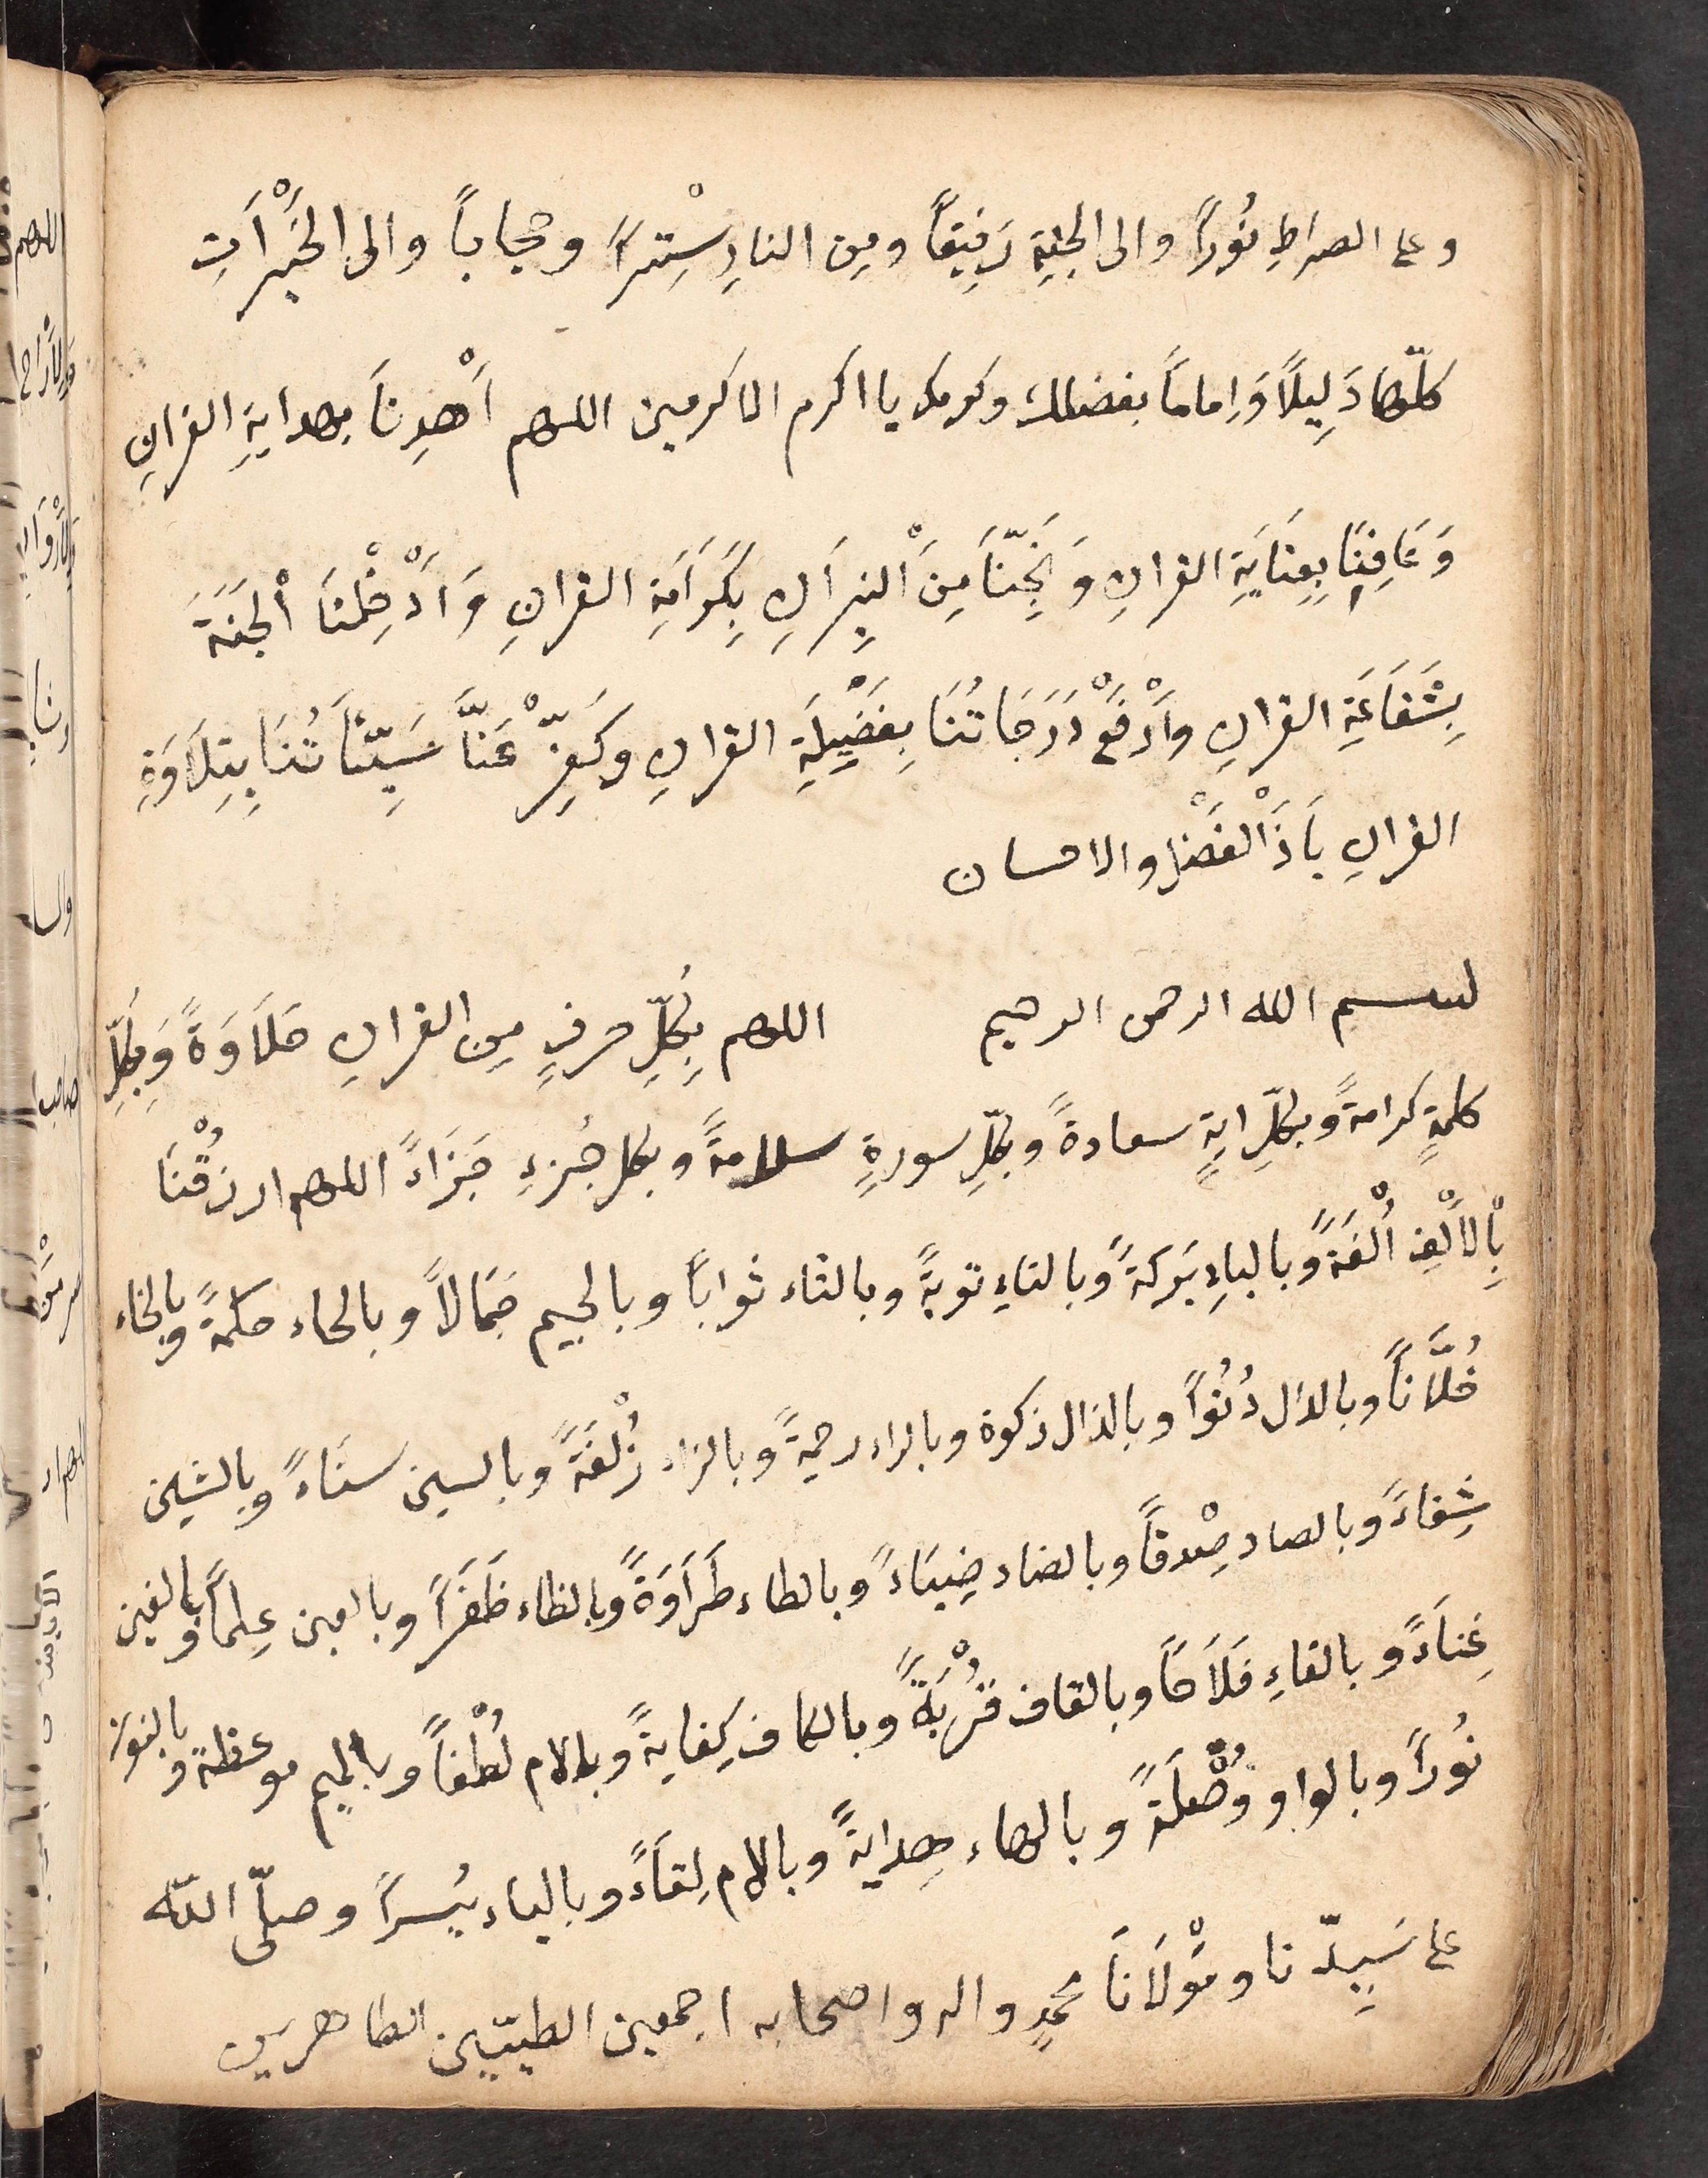 وعلى الصراطِ نُوراً والى الجنةِ رَفِيقاً ومِن النارِ سِتْراً وحجاباً والى الخَيْرَاتِ
كلّها دَلِيلاً وَاِماماً بفضلك وكرمك يا اكرم الاكرمين اللهم اَهْدِنَا بهدايةِ القرانِ
وَعَافِنَا بِعِنَايَةِ القرانِ وَنَجِّنَا مِنَ اْلنِيرَانِ بِكَرَامَةِ القرانِ وَاَدْخِلْنَا اْلجَنَةَ
بِشَفَاعَةِ القرانِ وَاَرْفَعْ دَرَجَاتُنَا بِفَضِيْلَةِ القرانِ وَكَفِّرْ عَنَّا سَيِّئَاتُنَا بِتِلَاوَةِ
القرانِ يَاذَاْلفَضْلِ والاحسان
بسم الله الرحمن الرحيم اللهم بِكُلِّ حرفٍ مِن القرانِ حَلَاوَةً وَبِكُلِّ
كلمةٍ كرامةً وبكلِّ ايةٍ سعادةً وبكلِّ سورةٍ سلامةً وبكل جُزءٍ جَزَاءً اللهم ارزقْنَا
بِاْلاَلْفِ اُلْفَةً وبالباءِ بَركةً وبالتاءِ توبةً وبالثاء ثواباً وبالجيم جَمَالاً وبالحاء حكمةً وبالخاء
خُلَّاناً وبالدال دُنُواً وبالذال ذكوة وبالراء رحمةً وبالزاء زُلْفَةً وبالسين سَنَاءً وبالشين
شِفاءً وبالصاد صِدْقاً وبالضاد ضِيَاءً وبالطاء طَرَاوَةً وبالظاء ظَفَراً وبالعين عِلماً وبالغين
غِنَاءً وبالفاءِ فَلَاحًا وبالقاف قُرْبَةً وبالكاف كِفايةً وبالام لُطْفاً وبالميم موعظة وبالنون
نُوراً وبالواو وُصْلَةً وبالهاء هِدايةً وبالام لِقَاءً وبالياء يُسراً وصلّى اللّه
على سَيِدّنا ومَوْلَانَا محمدٍ واله واصحابه اجمعين الطيبّين الطاهرين